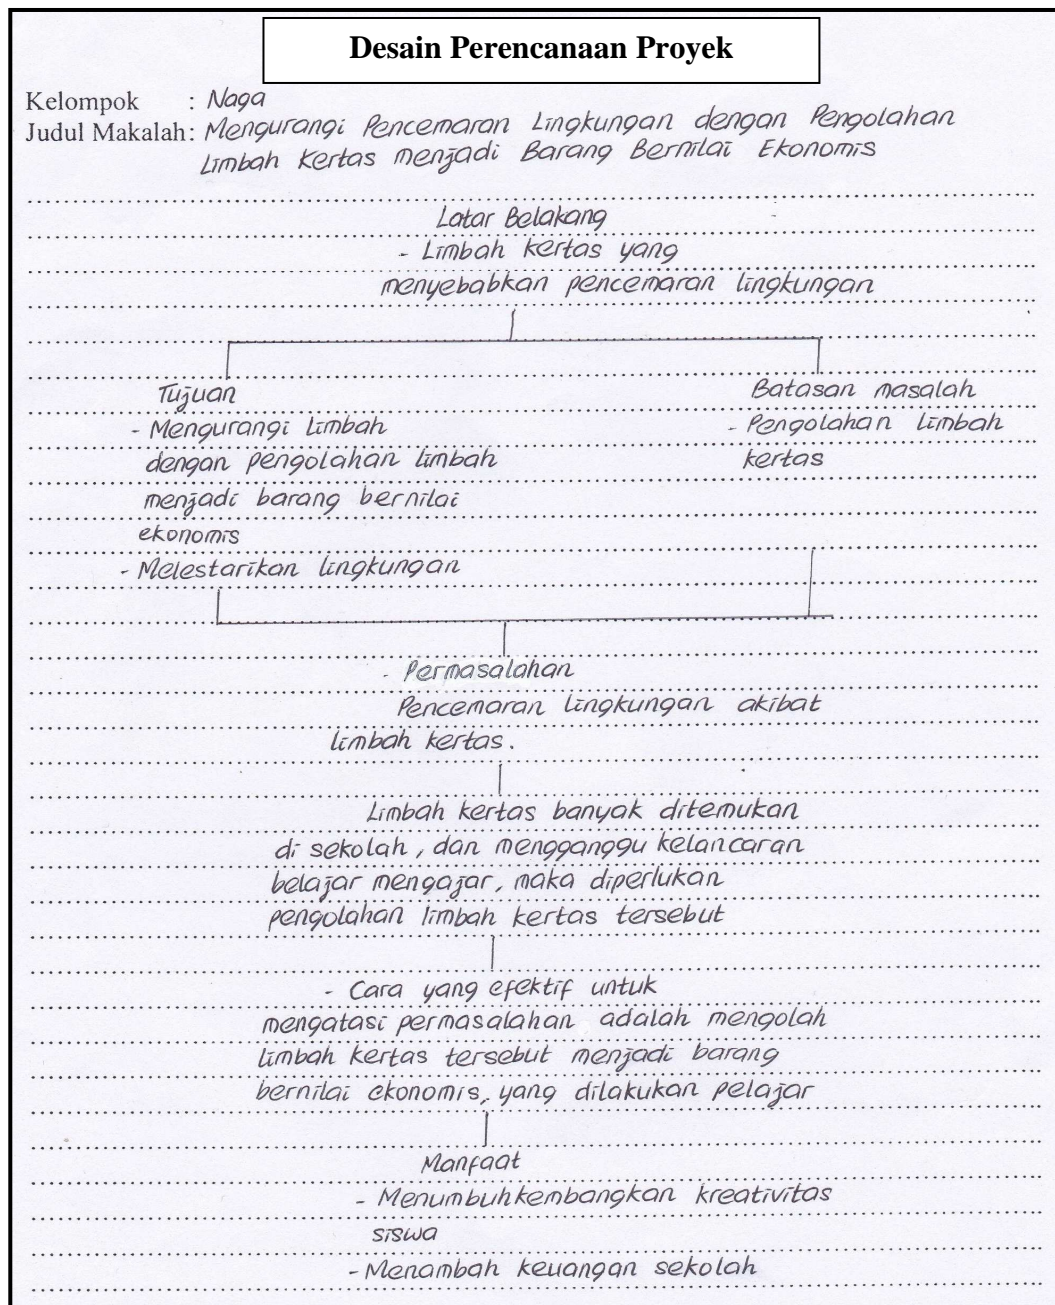 Desain Perencanaan Proyek
Kelompok : Naga
Judul Makalah: Mengurangi Pencemaran Lingkungan dengan Pengolahan
Limbah Kertas menjadi Barang Bernilai Ekonomis
Latar Belakang
- Limbah kertas yang
menyebabkan pencemaran lingkungan
Tujuan
- Mengurangi limbah
dengan pengolahan limbah
menjadi barang bernilai
ekonomis
- Melestarikan lingkungan
Batasan masalah
- Pengolahan limbah
kertas
- Permasalahan
Pencemaran lingkungan akibat
limbah kertas.
Limbah kertas banyak ditemukan
di sekolah, dan mengganggu kelancaran
belajar mengajar, maka diperlukan
pengolahan limbah kertas tersebut
- Cara yang efektif untuk
mengatasi permasalahan, adalah mengolah
limbah kertas tersebut menjadi barang
bernilai ekonomis, yang dilakukan pelajar
Manfaat
- Menumbuhkembangkan kreativitas
siswa
- Menambah keuangan sekolah